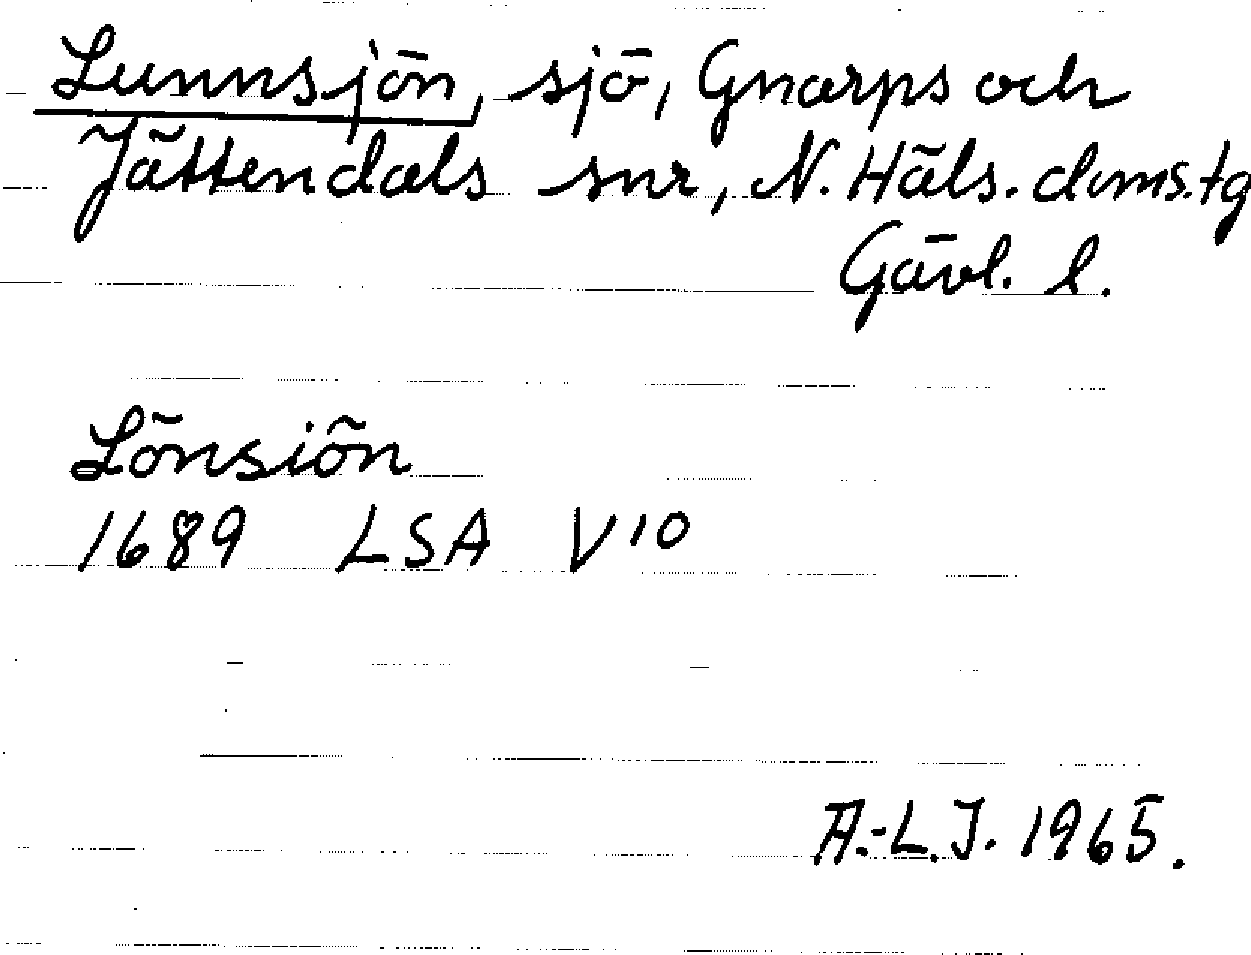 Lunnsjön, sjö, Gnarps och
Jättendals snr, N. Häls. doms.tg
Gävl. l.
Lönsiön
1689 LSA V10
A.-L.J. 1965.